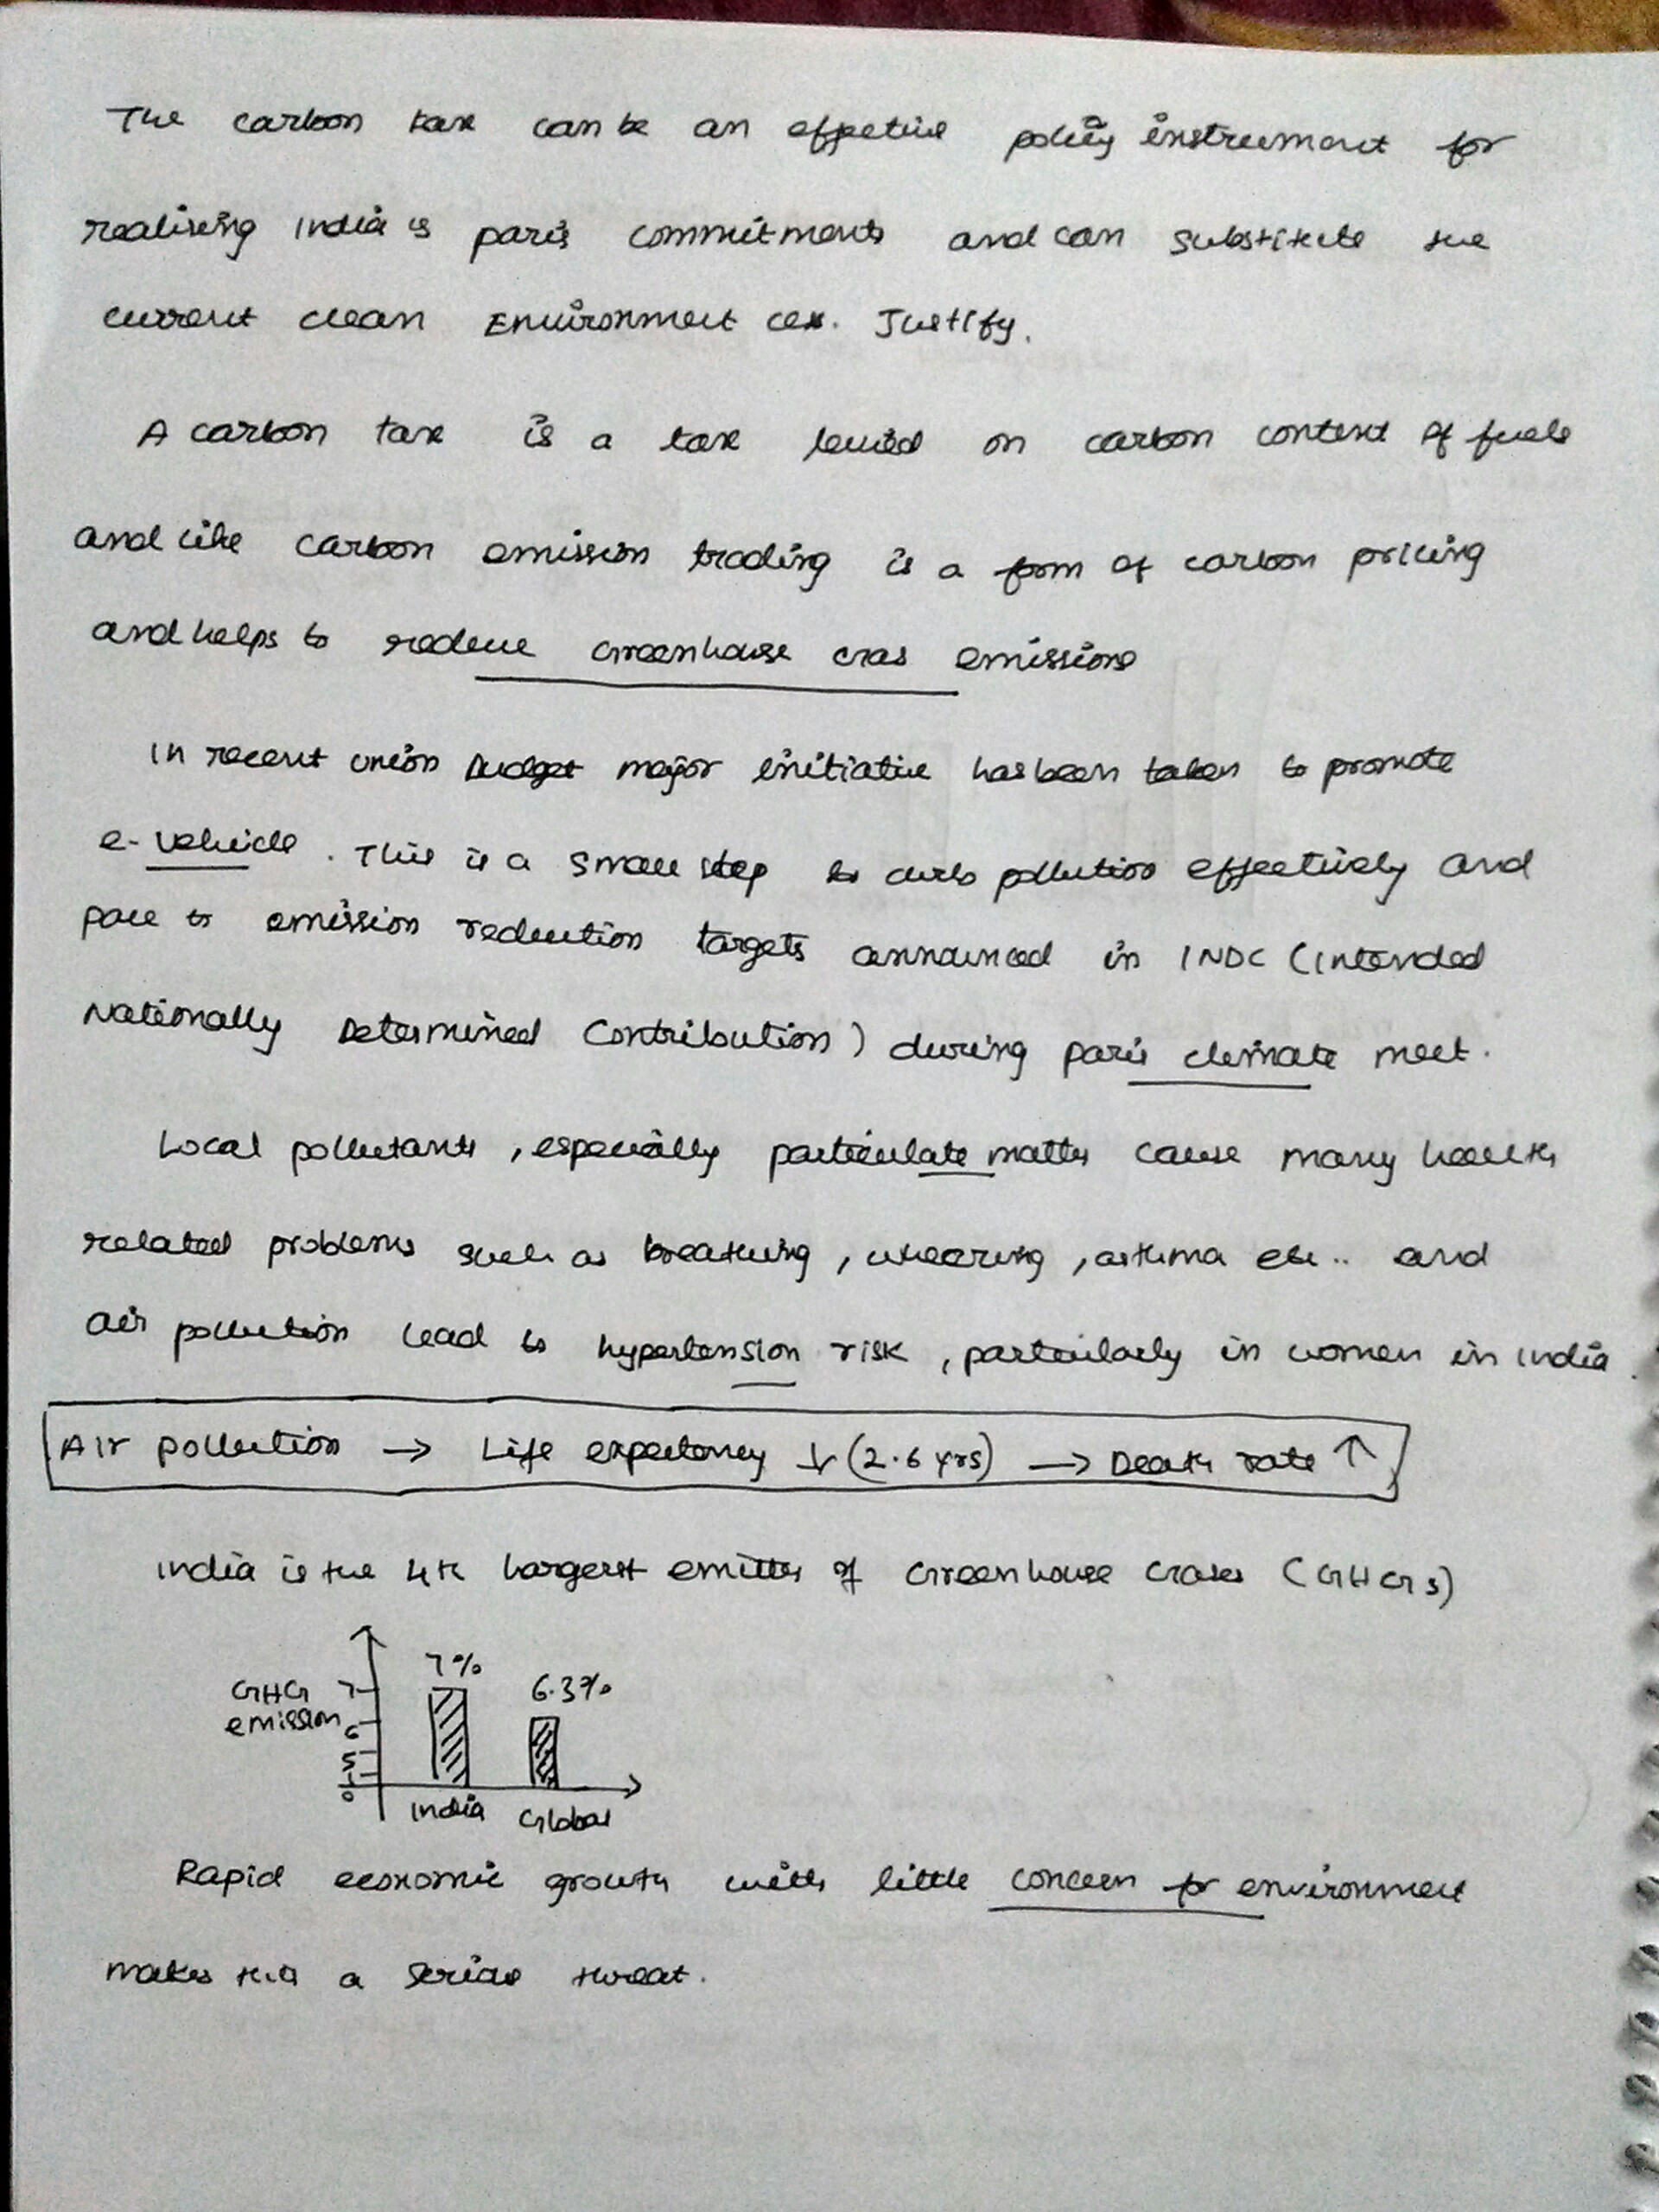 The carbon tax can be an effective policy instrument for
realising India's paris commitments and can substitute the
current clean Environment cess. Justify.
A carbon tax is a tax levied on carbon content of fuels
and like carbon emission trading is a form of carbon pricing
and helps to reduce Greenhouse Gas emissions
In recent union Budget major initiative has been taken to promote
e-vehicle. This is a small step to curb pollution effectively and
pace to emission reduction targets announced in INDC (Intended
Nationally Determined Contribution) during paris climate meet.
Local pollutants, especially particulate matter cause many health
related problems such as breathing, wheezing, asthma etc.. and
air pollution lead to hypertension risk, particularly in women in India.
Air pollution → Life expectancy ↓ (2.6 yrs) → Death rate ↑
India is the 4th largest emitter of Greenhouse Gases (GHGs)
7%
GHG 7 6.3%
emission 6
5
1
0
India Global
Rapid economic growth with little concern for environment
makes this a serious threat.